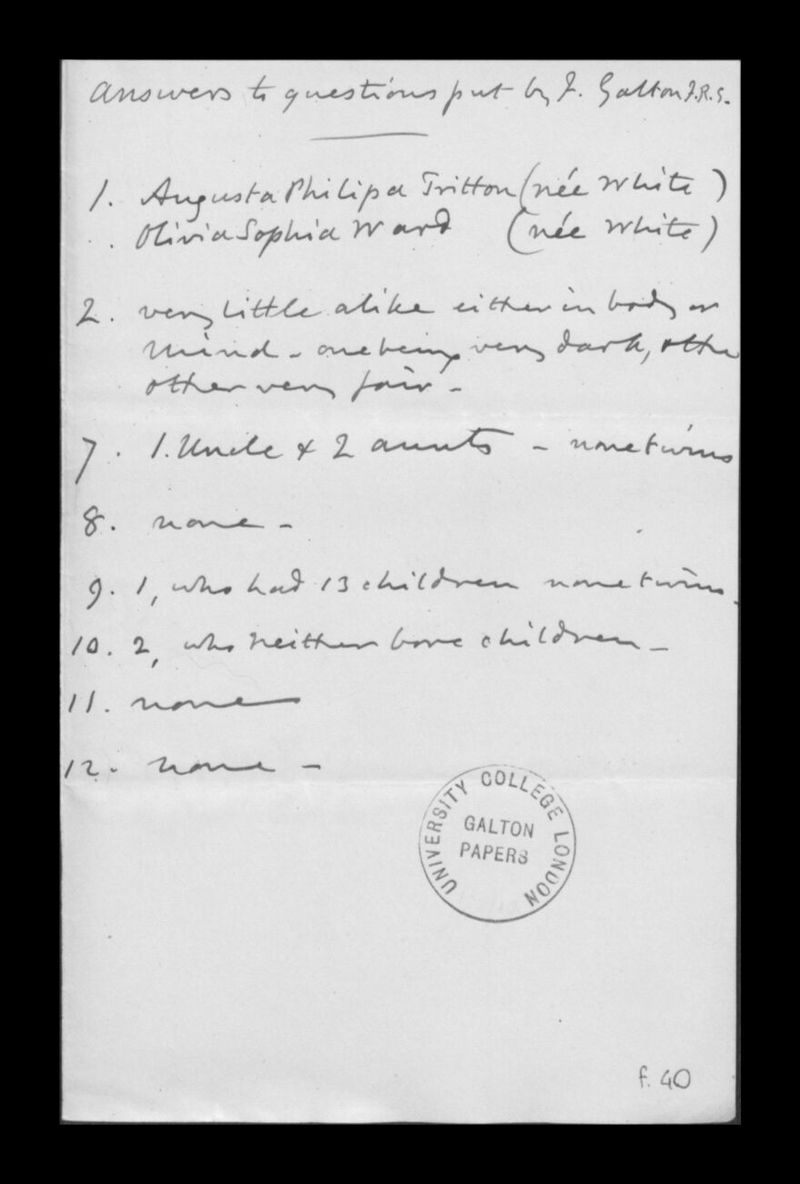 Answers to questions put by F. Galton F.R.S.
1. Augusta Philipa Tritton (née White)
. Olivia Sophia Ward (née White)
2. very little alike either in body or
mind - one being very dark, othe
other very fair -
7. 1. Uncle & 2 aunts - none twins
8. none -
9. 1, who had 13 children none twins.
10. 2, who neither bore children -
11. none
12. none -
UNIVERSITY COLLEGE LONDON
GALTON
PAPERS
f. 40